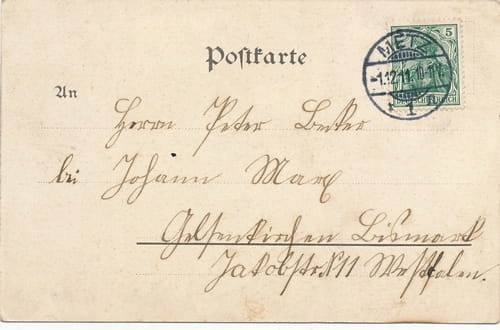 Postkarte
5
METZ
1.12.11.10-11V.
* 1
An
Herrn Peter Becker
bei Johann Marx
Gelsenkirchen Bismark
Jakobstr 11 Westfalen.